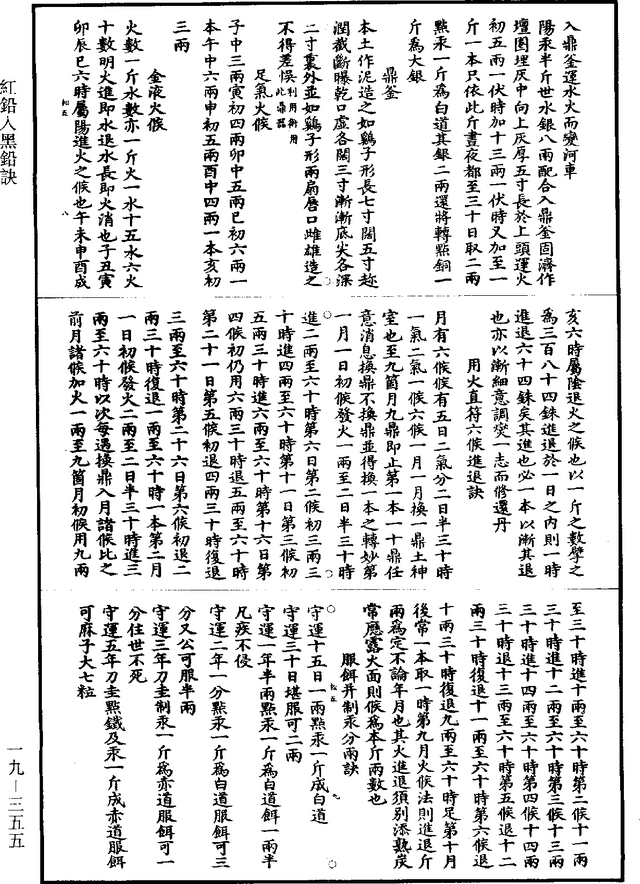 入鼎釜運水火而變河車
陽汞半斤世水銀八兩配合入鼎釜固濟作
壇圍埋灰中向上灰厚五寸長於上頭運火
初五兩一伏時加十三兩一伏時又加至一
斤一本只依此斤晝夜都至三十日取二兩
點汞一斤爲白道其銀二兩還將轉點銅一
斤爲大銀
鼎釜
本土作泥造之如鷄子形長七寸闊五寸趂
潤截斷曝乾口虛各闊三寸漸漸底尖各深
二寸裏外並如鷄子形兩扇唇口雌雄造之
不得差悮此鼎器利用術用
足氣火候
子中三兩寅初四兩卯中五兩巳初六兩一
本午中六兩申初五兩酉中四兩一本亥初
三兩
金液火候
火數一斤水數亦一斤火一水十五水六火
十數明火進即水退水長即火消也子丑寅
卯辰巳六時屬陽進火之候也午未申酉戌
亥六時屬陰退火之候也以一斤之數擘之
爲三百八十四銖進退於一日之内則一時
進退六十四銖矣其進也必一本以漸其退
也亦以漸細意調燮一志而修還丹
用火直符六候進退訣
月有六候候有五日二氣分二日半三十時
一氣二氣一候六候一月一月換一鼎土神
室也至九箇月九鼎即止第一本一十鼎任
意消息換鼎不換鼎並得換一本之轉妙第
一月一日初候發火一兩至二日半三十時
進二兩至六十時第六日第二候初三兩三
十時進四兩至六十時第十一日第三候初
五兩三十時進六兩至六十時第十六日第
四候初仍用六兩三十時退五兩至六十時
第二十一日第五候初退四兩三十時復退
三兩至六十時第二十六日第六候初退二
兩三十時復退一兩至六十時一本第二月
一日初候發火二兩至二日半三十時進三
兩至六十時以次每遇換鼎入月諸候比之
前月諸候加火一兩至九箇月初候用九兩
至三十時進十兩至六十時第二候十一兩
三十時進十二兩至六十時第三候十三兩
三十時進十四兩至六十時第四候十四兩
三十時退十三兩至六十時第五候退十二
兩三十時復退十一兩至六十時第六候退
十兩三十時復退九兩至六十時足第十月
後常一本取一時第九月火候法則進退斤
兩爲定不論年月也其火進退須別添熟炭
常應露火面則候爲本斤兩數也
服餌并制汞分兩訣
守運十五日一兩點汞一斤成白道
守運三十日堪服可二兩
守運一年半兩點汞一斤爲白道餌一兩半
凡疾不侵
守運二年一分點汞一斤爲白道服餌可三
分又公可服半兩
守運三年刀圭制汞一斤爲赤道服餌可一
分住世不死
守運五年刀圭點鐵及汞一斤成赤道服餌
可麻子大七粒
紅鉛入黑鉛訣
一九-三五五